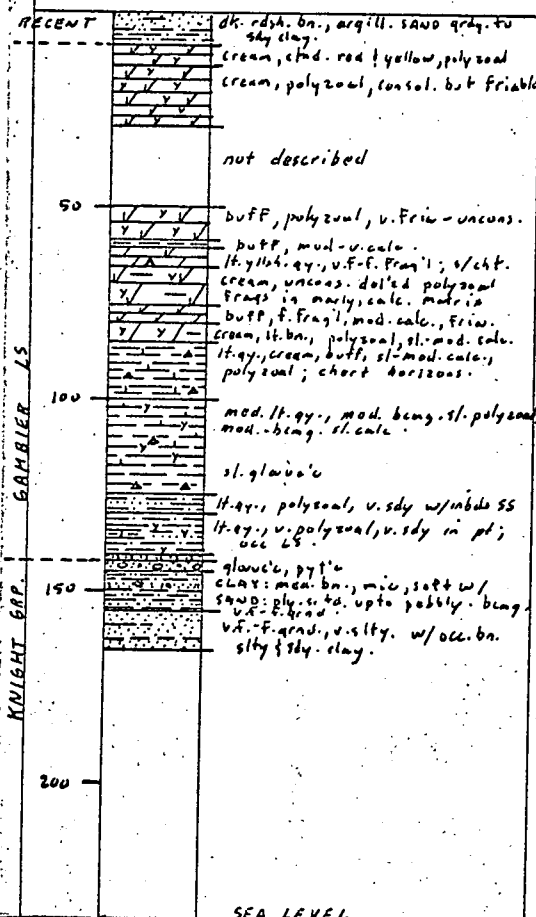 RECENT
dk. rdsh. bn., argill. SAND grdg. to
sdy clay.
cream, ctnd. red & yellow, polyzoal
cream, polyzoal, consol. but friable
not described
50
buff, polyzoal, v. friw - uncons.
buff, mud - v. calc.
lt. yllsh. gy., v.f-f. frag'l; s/cht.
cream, uncons. dol'zd polyzoal
frags in marly, calc. matrix
buff, f. frag'l, mod. calc., friw.
cream, lt. bn., polyzoal, sl.-mod. calc.
lt. gy., cream, buff, sl-mod. calc.,
polyzoal; chert horizons.
100
GAMBIER LS
med. lt. gy., mod. bcmg. sl. polyzoal
mod.-bcmg. sl. calc.
sl. glauc'c
lt. gy., polyzoal, v. sdy w/inbds SS
lt. gy., v. polyzoal, v. sdy in pt;
occ LS.
glauc'c, pyt'c
150
CLAY: med. bn., mic, soft w/
SAND: ply. s. td. upto pebbly. bcmg.
v.f.-f. grnd.
v.f.-f. grnd., v. slty. w/ occ. bn.
slty & sdy. clay.
KNIGHT GRP.
200
SEA LEVEL